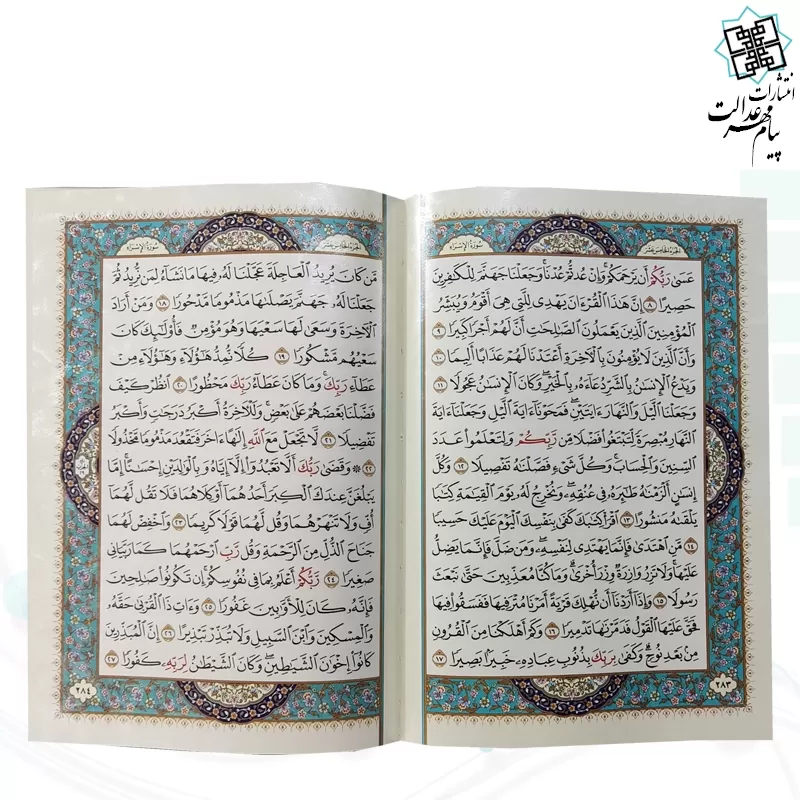 انتشارات
پیام مهر عدالت
سورة الإسراء
الجزء الخامس عشر
عَسَىٰ رَبُّكُمْ أَن يَرْحَمَكُمْ ۚ وَإِنْ عُدتُّمْ عُدْنَا ۘ وَجَعَلْنَا جَهَنَّمَ لِلْكَٰفِرِينَ
حَصِيرًا ٨ إِنَّ هَٰذَا الْقُرْءَانَ يَهْدِى لِلَّتِى هِىَ أَقْوَمُ وَيُبَشِّرُ
الْمُؤْمِنِينَ الَّذِينَ يَعْمَلُونَ الصَّٰلِحَٰتِ أَنَّ لَهُمْ أَجْرًا كَبِيرًا ٩
وَأَنَّ الَّذِينَ لَا يُؤْمِنُونَ بِالْءَاخِرَةِ أَعْتَدْنَا لَهُمْ عَذَابًا أَلِيمًا ١٠
وَيَدْعُ الْإِنسَٰنُ بِالشَّرِّ دُعَآءَهُۥ بِالْخَيْرِ ۖ وَكَانَ الْإِنسَٰنُ عَجُولًا ١١
وَجَعَلْنَا الَّيْلَ وَالنَّهَارَ ءَايَتَيْنِ ۖ فَمَحَوْنَآ ءَايَةَ الَّيْلِ وَجَعَلْنَآ ءَايَةَ
النَّهَارِ مُبْصِرَةً لِّتَبْتَغُوا فَضْلًا مِّن رَّبِّكُمْ وَلِتَعْلَمُوا عَدَدَ
السِّنِينَ وَالْحِسَابَ ۚ وَكُلَّ شَىْءٍ فَصَّلْنَٰهُ تَفْصِيلًا ١٢ وَكُلَّ
إِنسَٰنٍ أَلْزَمْنَٰهُ طَٰٓئِرَهُۥ فِى عُنُقِهِۦ ۖ وَنُخْرِجُ لَهُۥ يَوْمَ الْقِيَٰمَةِ كِتَٰبًا
يَلْقَىٰهُ مَنشُورًا ١٣ اقْرَأْ كِتَٰبَكَ كَفَىٰ بِنَفْسِكَ الْيَوْمَ عَلَيْكَ حَسِيبًا
١٤ مَّنِ اهْتَدَىٰ فَإِنَّمَا يَهْتَدِى لِنَفْسِهِۦ ۖ وَمَن ضَلَّ فَإِنَّمَا يَضِلُّ
عَلَيْهَا ۚ وَلَا تَزِرُ وَازِرَةٌ وِزْرَ أُخْرَىٰ ۗ وَمَا كُنَّا مُعَذِّبِينَ حَتَّىٰ نَبْعَثَ
رَسُولًا ١٥ وَإِذَآ أَرَدْنَآ أَن نُّهْلِكَ قَرْيَةً أَمَرْنَا مُتْرَفِيهَا فَفَسَقُوا فِيهَا
فَحَقَّ عَلَيْهَا الْقَوْلُ فَدَمَّرْنَٰهَا تَدْمِيرًا ١٦ وَكَمْ أَهْلَكْنَا مِنَ الْقُرُونِ
مِنۢ بَعْدِ نُوحٍ ۗ وَكَفَىٰ بِرَبِّكَ بِذُنُوبِ عِبَادِهِۦ خَبِيرًۢا بَصِيرًا ١٧
٢٨٣
سورة الإسراء
الجزء الخامس عشر
مَّن كَانَ يُرِيدُ الْعَاجِلَةَ عَجَّلْنَا لَهُۥ فِيهَا مَا نَشَآءُ لِمَن نُّرِيدُ ثُمَّ
جَعَلْنَا لَهُۥ جَهَنَّمَ يَصْلَىٰهَا مَذْمُومًا مَّدْحُورًا ١٨ وَمَنْ أَرَادَ
الْءَاخِرَةَ وَسَعَىٰ لَهَا سَعْيَهَا وَهُوَ مُؤْمِنٌ فَأُولَٰٓئِكَ كَانَ
سَعْيُهُم مَّشْكُورًا ١٩ كُلًّا نُّمِدُّ هَٰٓؤُلَآءِ وَهَٰٓؤُلَآءِ مِنْ
عَطَآءِ رَبِّكَ ۚ وَمَا كَانَ عَطَآءُ رَبِّكَ مَحْظُورًا ٢٠ انظُرْ كَيْفَ
فَضَّلْنَا بَعْضَهُمْ عَلَىٰ بَعْضٍ ۚ وَلَلْءَاخِرَةُ أَكْبَرُ دَرَجَٰتٍ وَأَكْبَرُ
تَفْضِيلًا ٢١ لَّا تَجْعَلْ مَعَ اللَّهِ إِلَٰهًا ءَاخَرَ فَتَقْعُدَ مَذْمُومًا مَّخْذُولًا
٢٢ ۞ وَقَضَىٰ رَبُّكَ أَلَّا تَعْبُدُوٓا إِلَّآ إِيَّاهُ وَبِالْوَٰلِدَيْنِ إِحْسَٰنًا ۚ إِمَّا
يَبْلُغَنَّ عِندَكَ الْكِبَرَ أَحَدُهُمَآ أَوْ كِلَاهُمَا فَلَا تَقُل لَّهُمَآ
أُفٍّ وَلَا تَنْهَرْهُمَا وَقُل لَّهُمَا قَوْلًا كَرِيمًا ٢٣ وَاخْفِضْ لَهُمَا
جَنَاحَ الذُّلِّ مِنَ الرَّحْمَةِ وَقُل رَّبِّ ارْحَمْهُمَا كَمَا رَبَّيَانِى
صَغِيرًا ٢٤ رَّبُّكُمْ أَعْلَمُ بِمَا فِى نُفُوسِكُمْ ۚ إِن تَكُونُوا صَٰلِحِينَ
فَإِنَّهُۥ كَانَ لِلْأَوَّٰبِينَ غَفُورًا ٢٥ وَءَاتِ ذَا الْقُرْبَىٰ حَقَّهُۥ
وَالْمِسْكِينَ وَابْنَ السَّبِيلِ وَلَا تُبَذِّرْ تَبْذِيرًا ٢٦ إِنَّ الْمُبَذِّرِينَ
كَانُوٓا إِخْوَٰنَ الشَّيَٰطِينِ ۖ وَكَانَ الشَّيْطَٰنُ لِرَبِّهِۦ كَفُورًا ٢٧
٢٨٤